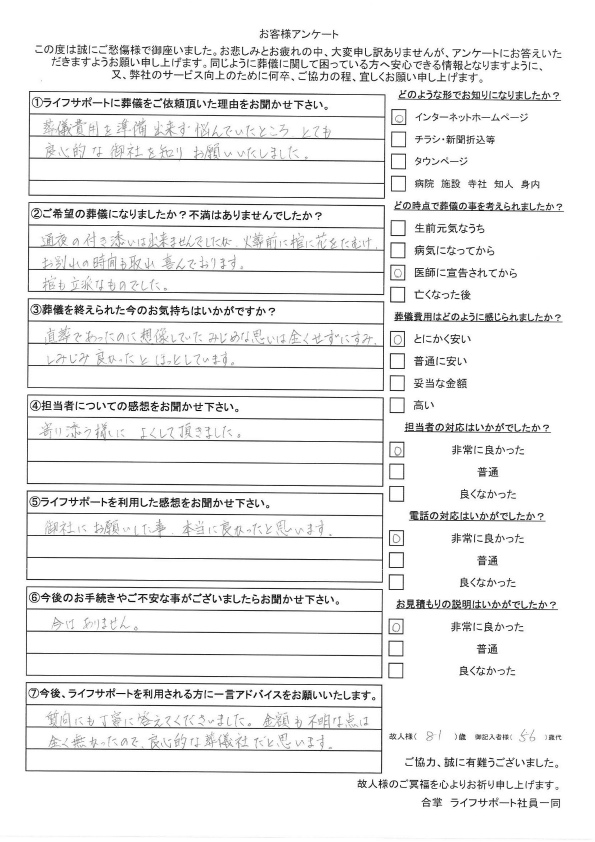 お客様アンケート
この度は誠にご愁傷様で御座いました。お悲しみとお疲れの中、大変申し訳ありませんが、アンケートにお答えいた
だきますようお願い申し上げます。同じように葬儀に関して困っている方へ安心できる情報となりますように、
又、弊社のサービス向上のために何卒、ご協力の程、宜しくお願い申し上げます。
①ライフサポートに葬儀をご依頼頂いた理由をお聞かせ下さい。
葬儀費用を準備出来ず悩んでいたところ とても
良心的な御社を知りお願いいたしました。
②ご希望の葬儀になりましたか？不満はありませんでしたか？
通夜の付き添いは出来ませんでしたが、火葬前に棺に花をたむけ、
お別れの時間も取れ喜んでおります。
棺も立派なものでした。
③葬儀を終えられた今のお気持ちはいかがですか？
直葬であったのに想像していたみじめな思いは全くせずにすみ、
しみじみ良かったとほっとしています。
④担当者についての感想をお聞かせ下さい。
寄り添う様に よくして頂きました。
⑤ライフサポートを利用した感想をお聞かせ下さい。
御社にお願いした事、本当に良かったと思います。
⑥今後のお手続きやご不安な事がございましたらお聞かせ下さい。
今はありません。
⑦今後、ライフサポートを利用される方に一言アドバイスをお願いいたします。
質問にも丁寧に答えてくださいました。金額も不明な点は
全く無かったので、良心的な葬儀社だと思います。
どのような形でお知りになりましたか？
○ インターネットホームページ
チラシ・新聞折込等
タウンページ
病院 施設 寺社 知人 身内
どの時点で葬儀の事を考えられましたか？
生前元気なうち
病気になってから
○ 医師に宣告されてから
亡くなった後
葬儀費用はどのように感じられましたか？
○ とにかく安い
普通に安い
妥当な金額
高い
担当者の対応はいかがでしたか？
○ 非常に良かった
普通
良くなかった
電話の対応はいかがでしたか？
○ 非常に良かった
普通
良くなかった
お見積もりの説明はいかがでしたか？
○ 非常に良かった
普通
良くなかった
故人様( 81 )歳 御記入者様( 56 )歳代
ご協力、誠に有難うございました。
故人様のご冥福を心よりお祈り申し上げます。
合掌 ライフサポート社員一同